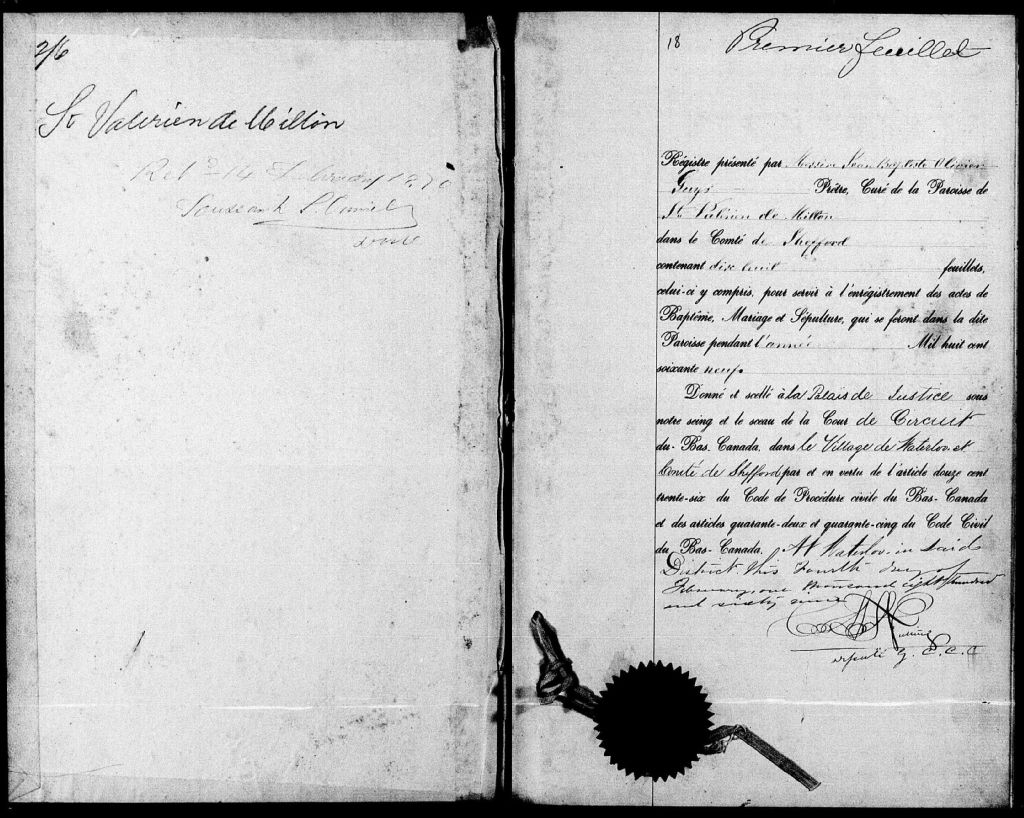 2/6
St Valerien de Milton
18
Premier feuillet
Régistre présenté par Messire Jean Baptiste Olivier
Guys Prêtre, Curé de la Paroisse de
St. Valérien de Milton
dans le Comté de Shefford
contenant dix huit feuillets,
celui-ci y compris, pour servir à l'enrégistrement des actes de
Baptême, Mariage et Sépulture, qui se feront dans la dite
Paroisse pendant l'année Mil huit cent
soixante neuf.
Donné et scellé à la Palais de Justice sous
notre seing et le sceau de la Cour de Circuit
du Bas-Canada, dans le Village de Waterloo et
Comté de Shefford par et en vertu de l'article douze cent
trente-six du Code de Procédure civile du Bas-Canada
et des articles quarante-deux et quarante-cinq du Code Civil
du Bas-Canada, At Waterloo in said
District this Fourth day of
February one thousand eight hundred
and sixty nine
député G. C. C. C